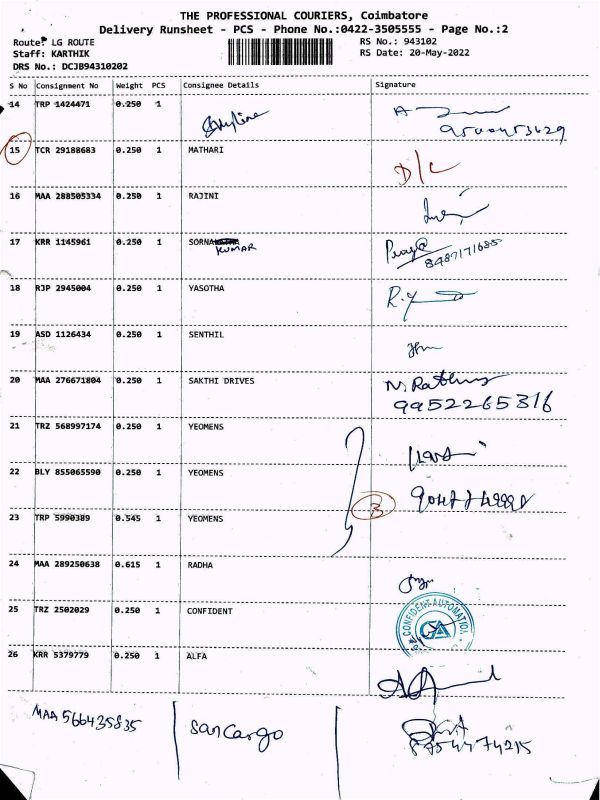 THE PROFESSIONAL COURIERS, Coimbatore
Delivery Runsheet - PCS - Phone No.:0422-3505555 - Page No.:2
Route: LG ROUTE
RS No.: 943102
Staff: KARTHIK
RS Date: 20-May-2022
DRS No.: DCJB94310202
S No Consignment No Weight PCS Consignee Details Signature
14 TRP 1424471 0.250 1 Skyline
15 TCR 29188683 0.250 1 MATHARI D/C
16 MAA 288505334 0.250 1 RAJINI
17 KRR 1145961 0.250 1 SORNA
KUMAR
18 RJP 2945004 0.250 1 YASOTHA
19 ASD 1126434 0.250 1 SENTHIL
20 MAA 276671804 0.250 1 SAKTHI DRIVES
9952265316
21 TRZ 568997174 0.250 1 YEOMENS
22 BLY 855065590 0.250 1 YEOMENS
3
23 TRP 5990389 0.545 1 YEOMENS
24 MAA 289250638 0.615 1 RADHA
25 TRZ 2502029 0.250 1 CONFIDENT CONFIDENT AUTOMATION CA
26 KRR 5379779 0.250 1 ALFA
MAA 566435835 San Cargo